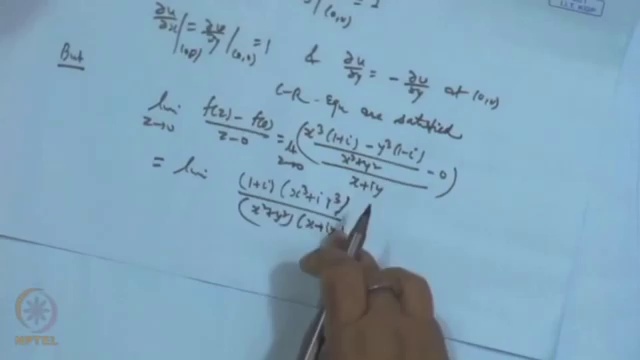 ∂u/∂x|(0,0) = ∂v/∂y|(0,0) = 1 & ∂u/∂y = - ∂v/∂y at (0,0)
But C-R-Eqn are satisfied
lim z→0 f(z) - f(0) / z-0 = lt z→0 ( x³(1+i) - y³(1-i) / x²+y² - 0 / x+iy )
= lim (1+i)(x³+iy³) / (x²+y²)(x+iy)
NPTEL